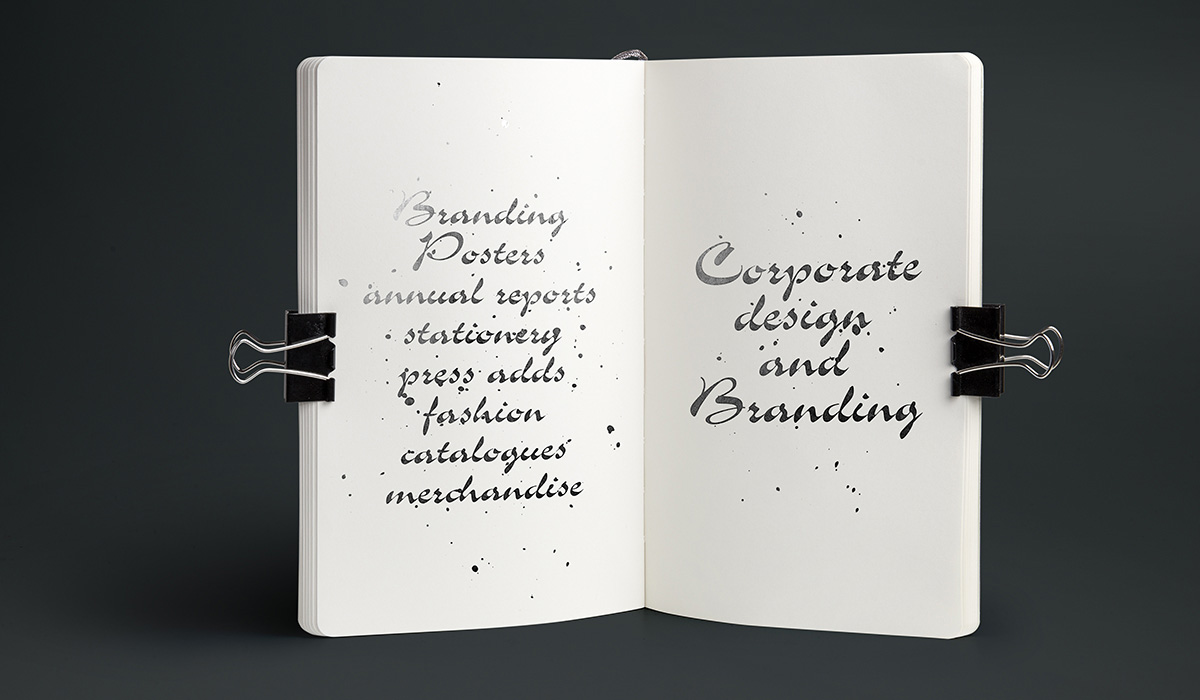 Branding
Posters
annual reports
stationery
press adds
fashion
catalogues
merchandise
Corporate
design
and
Branding